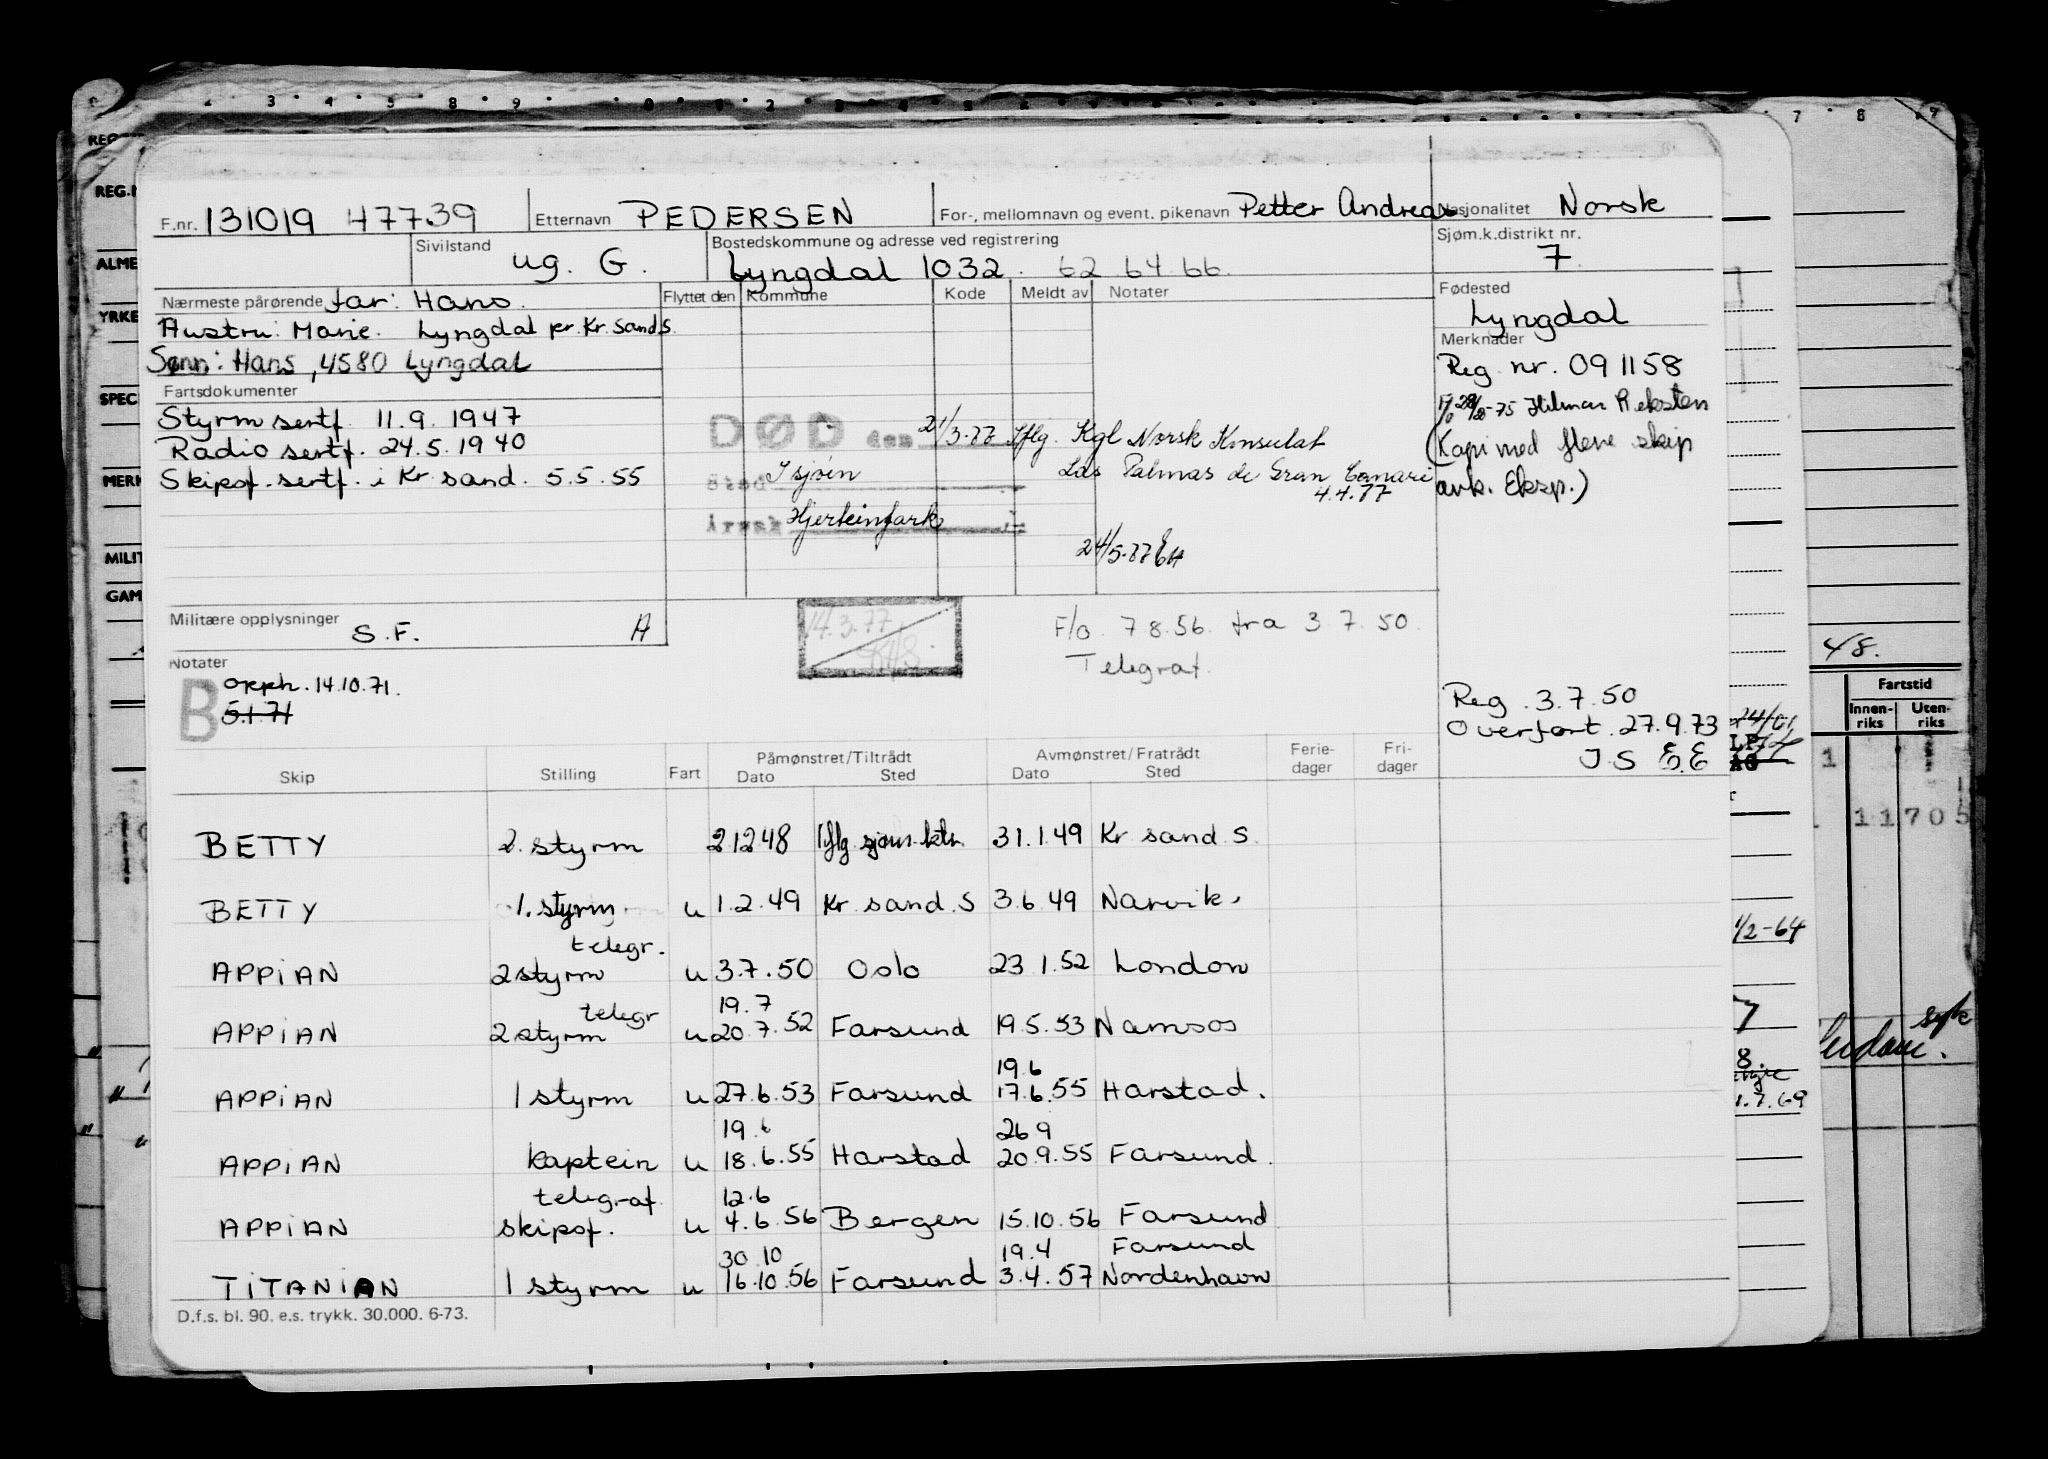 F.nr. 131019 47739 Etternavn PEDERSEN For-, mellomnavn og event. pikenavn Petter Andreas Nasjonalitet Norsk
Sivilstand ug. G. Bostedskommune og adresse ved registrering Sjøm.k.distrikt nr.
Lyngdal 1032. 62 64 66 7
Nærmeste pårørende far: Hans. Flyttet den Kommune Kode Meldt av Notater Fødested
Hustru: Marie. Lyngdal pr. Kr. sand S. Lyngdal
Sønn: Hans, 4580 Lyngdal Merknader
Reg nr. 091158
Fartsdokumenter
Styrm sertf. 11.9.1947 -75 Hilmar Reksten
Radio sertf. 24.5.1940 DØD den 21/3.77 Iflg. Kgl Norsk Konsulat (Kapt med flere skip
Skipsf. sertf. i Kr sand. 5.5.55 Sted I sjøen Las Palmas de Gran Canari ank. Eksp.)
4.4.77
Årsak Hjerteinfark
24/5.77 EH
Militære opplysninger S.F. A
14.3.77 F/o. 7 8.56. fra 3.7.50.
Telegraf.
Notater
B opph. 14.10.71.
5.1.71
Reg. 3.7.50
Overført. 27.9.73
J.S E.E
Skip Stilling Fart Påmønstret/Tiltrådt Avmønstret/Fratrådt Ferie-dager Fri-dager
Dato Sted Dato Sted
BETTY 2. styrm 21248 Iflg sjøm.ktr. 31.1.49 Kr sand S.
BETTY 1. styrm u 1.2.49 Kr sand. S 3.6.49 Narvik.
telegr.
APPIAN 2 styrm u 3.7.50 Oslo 23 1.52 London
telegr 19.7
APPIAN 2 styrm u 20.7.52 Farsund 19.5.53 Namsos
19.6
APPIAN 1 styrm u 27.6.53 Farsund 17.6.55 Harstad.
19.6 26 9
APPIAN kaptein u 18.6.55 Harstad 20.9.55 Farsund.
telegraf 12.6
APPIAN skipsf. u 4.6.56 Bergen 15.10.56 Farsund
30.10 19.4 Farsund
TITANIAN 1 styrm u 16.10.56 Farsund 3.4.57 Nordenhavn
D.f.s. bl. 90. e.s. trykk. 30.000. 6-73.
REG.N
ALME
YRKE
SPEC
MERK
MILIT
GAM
48.
Fartstid
Innen-riks Uten-riks
1
11705
1/2-64
1.7.69